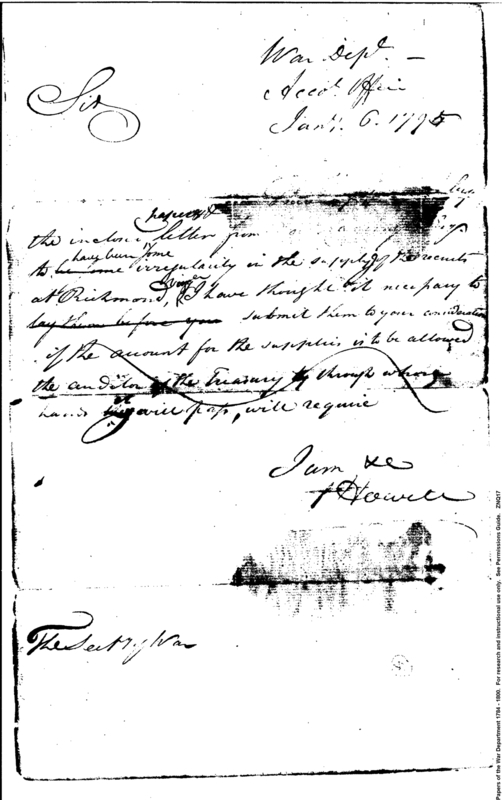 War Dept. —
Accots. Office
Jany. 6. 1795
Sir
the inclosed letter from
to be some irregularity in the supply of the recruits
have been some
at Richmond, I have thought it necessary to
lay them before you submit them to your consideration
if the account for the supplies is to be allowed
the auditor of the Treasury through whose
hands it will pass, will require
I am &c
Howell
The Secy of War
Papers of the War Department 1784 - 1800. For research and instructional use only. See Permissions Guide. ZNQ17